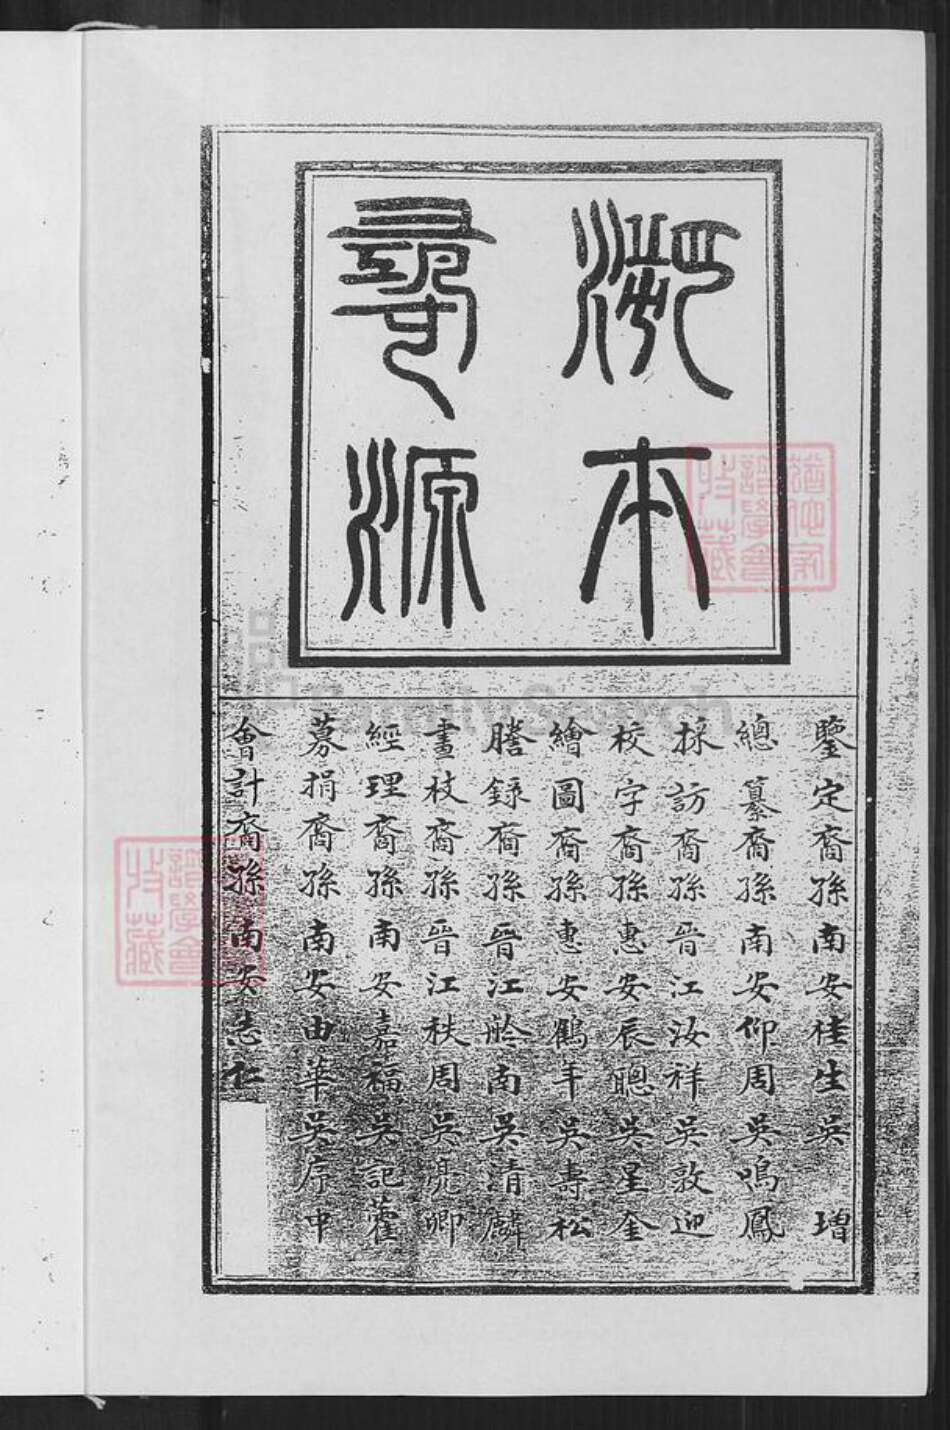 溯本
尋源
鑒定裔孫南安桂生吳 增
總纂裔孫南安仰周吳鳴鳳
採訪裔孫晉江汝祥吳敦迎
校字裔孫惠安辰聰吳星奎
繪圖裔孫惠安鶴年吳壽松
謄錄裔孫晉江舲南吳清麟
畫枝裔孫晉江秩周吳亮卿
經理裔孫南安嘉福吳記藿
募捐裔孫南安由華吳序中
會計裔孫南安志仁
譜學會
收藏
譜學會
收藏
FamilySearch